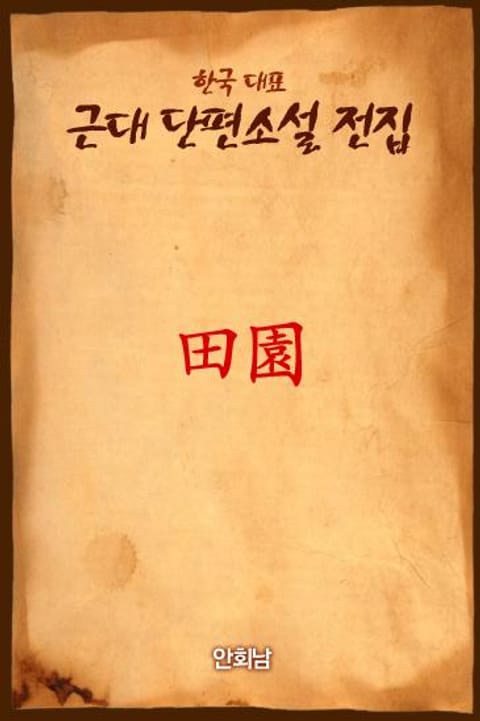 한국 대표
근대 단편소설 전집
田園
안회남